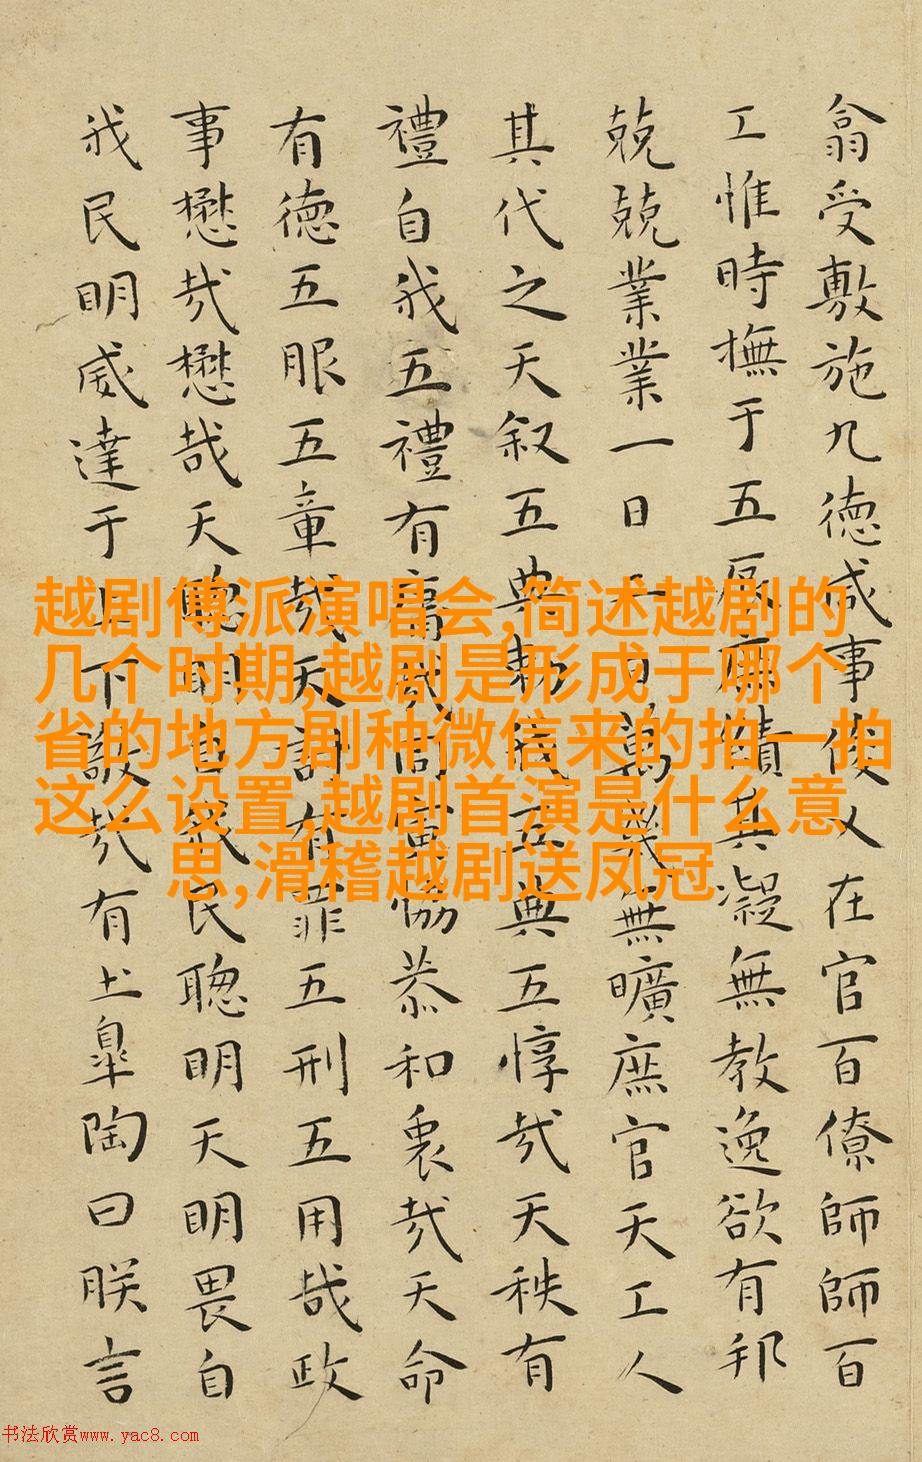 翕受敷施九德咸事俊乂在官百僚師師百
工惟時撫于五辰庶績其凝無教逸欲有邦
兢兢業業一日二日萬幾無曠庶官天工人
其代之天叙五典勑我五典五惇哉天秩有
禮自我五禮有庸哉同寅協恭和衷哉天命
有德五服五章哉天討有罪五刑五用哉政
事懋哉懋哉天聰明自我民聰明天明畏自
我民明威達于上下敬哉有土皐陶曰朕言
越剧傅派演唱会,简述越剧的
几个时期,越剧是形成于哪个
省的地方剧种微信来的拍一拍
这么设置,越剧首演是什么意
思,滑稽越剧送凤冠
书法欣赏www.yac8.com